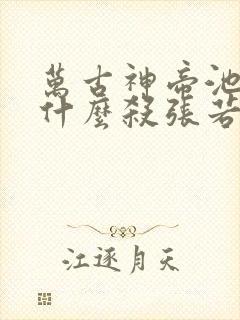 萬古神帝池
什麼殺張若
江逐月天